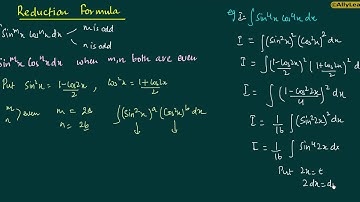 Reduction Formula
∫ sinᵐx cosⁿx dx → m is odd
→ n is odd
∫ sinᵐx cosⁿx dx when m,n both are even
Put sin²x = (1-cos2x)/2 , cos²x = (1+cos2x)/2
m n > even m = 2a
n = 2b
∫(sin²x)ᵃ (cos²x)ᵇ dx
©AllyLea
eg I = ∫ sin⁴x cos⁴x dx
I = ∫ (sin²x)² (cos²x)² dx
I = ∫ ((1-cos2x)/2)² ((1+cos2x)/2)² d
I = ∫ ((1-cos²2x)/4)² dx
I = 1/16 ∫ (sin²2x)² dx
I = 1/16 ∫ sin⁴2x dx
Put 2x = t
2dx = d